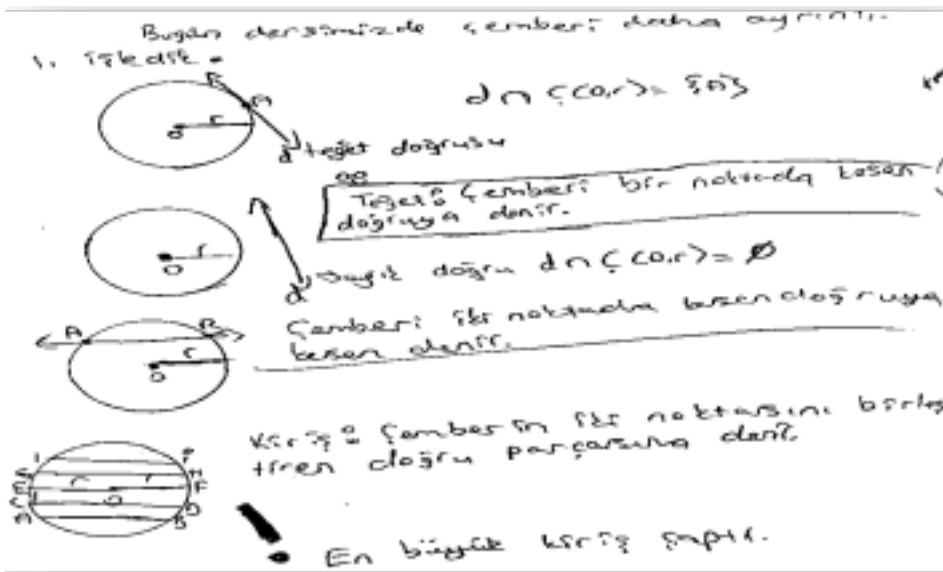 Bugün dersimizde çemberi daha ayrıntı.
1. işledik.
A
d ∩ Ç(O,r) = {A}
O r
d teğet doğrusu
Teğet: Çemberi bir noktada kesen
doğruya denir.
O r
d doğru d ∩ Ç(O,r) = ∅
A B
Çemberi iki noktada kesen doğruya
kesen denir.
O r
Kiriş: Çemberin iki noktasını birleş
tiren doğru parçasına denir.
E r O r F
A B
En büyük kiriş çaptır.